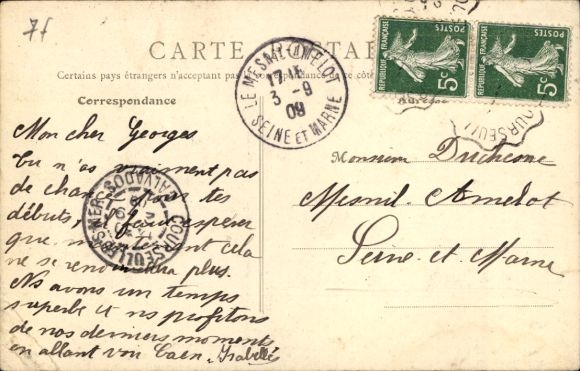 7f
CARTE POSTALE
Certains pays étrangers n'acceptent pas de correspondance de ce côté
Correspondance
Adresse
LE MESNIL-AMELOT
3 -9
09
SEINE ET MARNE
REPUBLIQUE FRANÇAISE
POSTES
5c
REPUBLIQUE FRANÇAISE
POSTES
5c
COURSEULLES
COURSEULLES-S-MER
CALVADOS
Mon cher Georges
Tu n'as vraiment pas
de chance pour tes
débuts, il faut espérer
que cela
ne se renouvellera plus.
Ns avons un temps
superbe et ns profitons
de nos derniers moments
en allant voir Caen. Isabelle
Monsieur Duchesne
Mesnil-Amelot
Seine-et-Marne